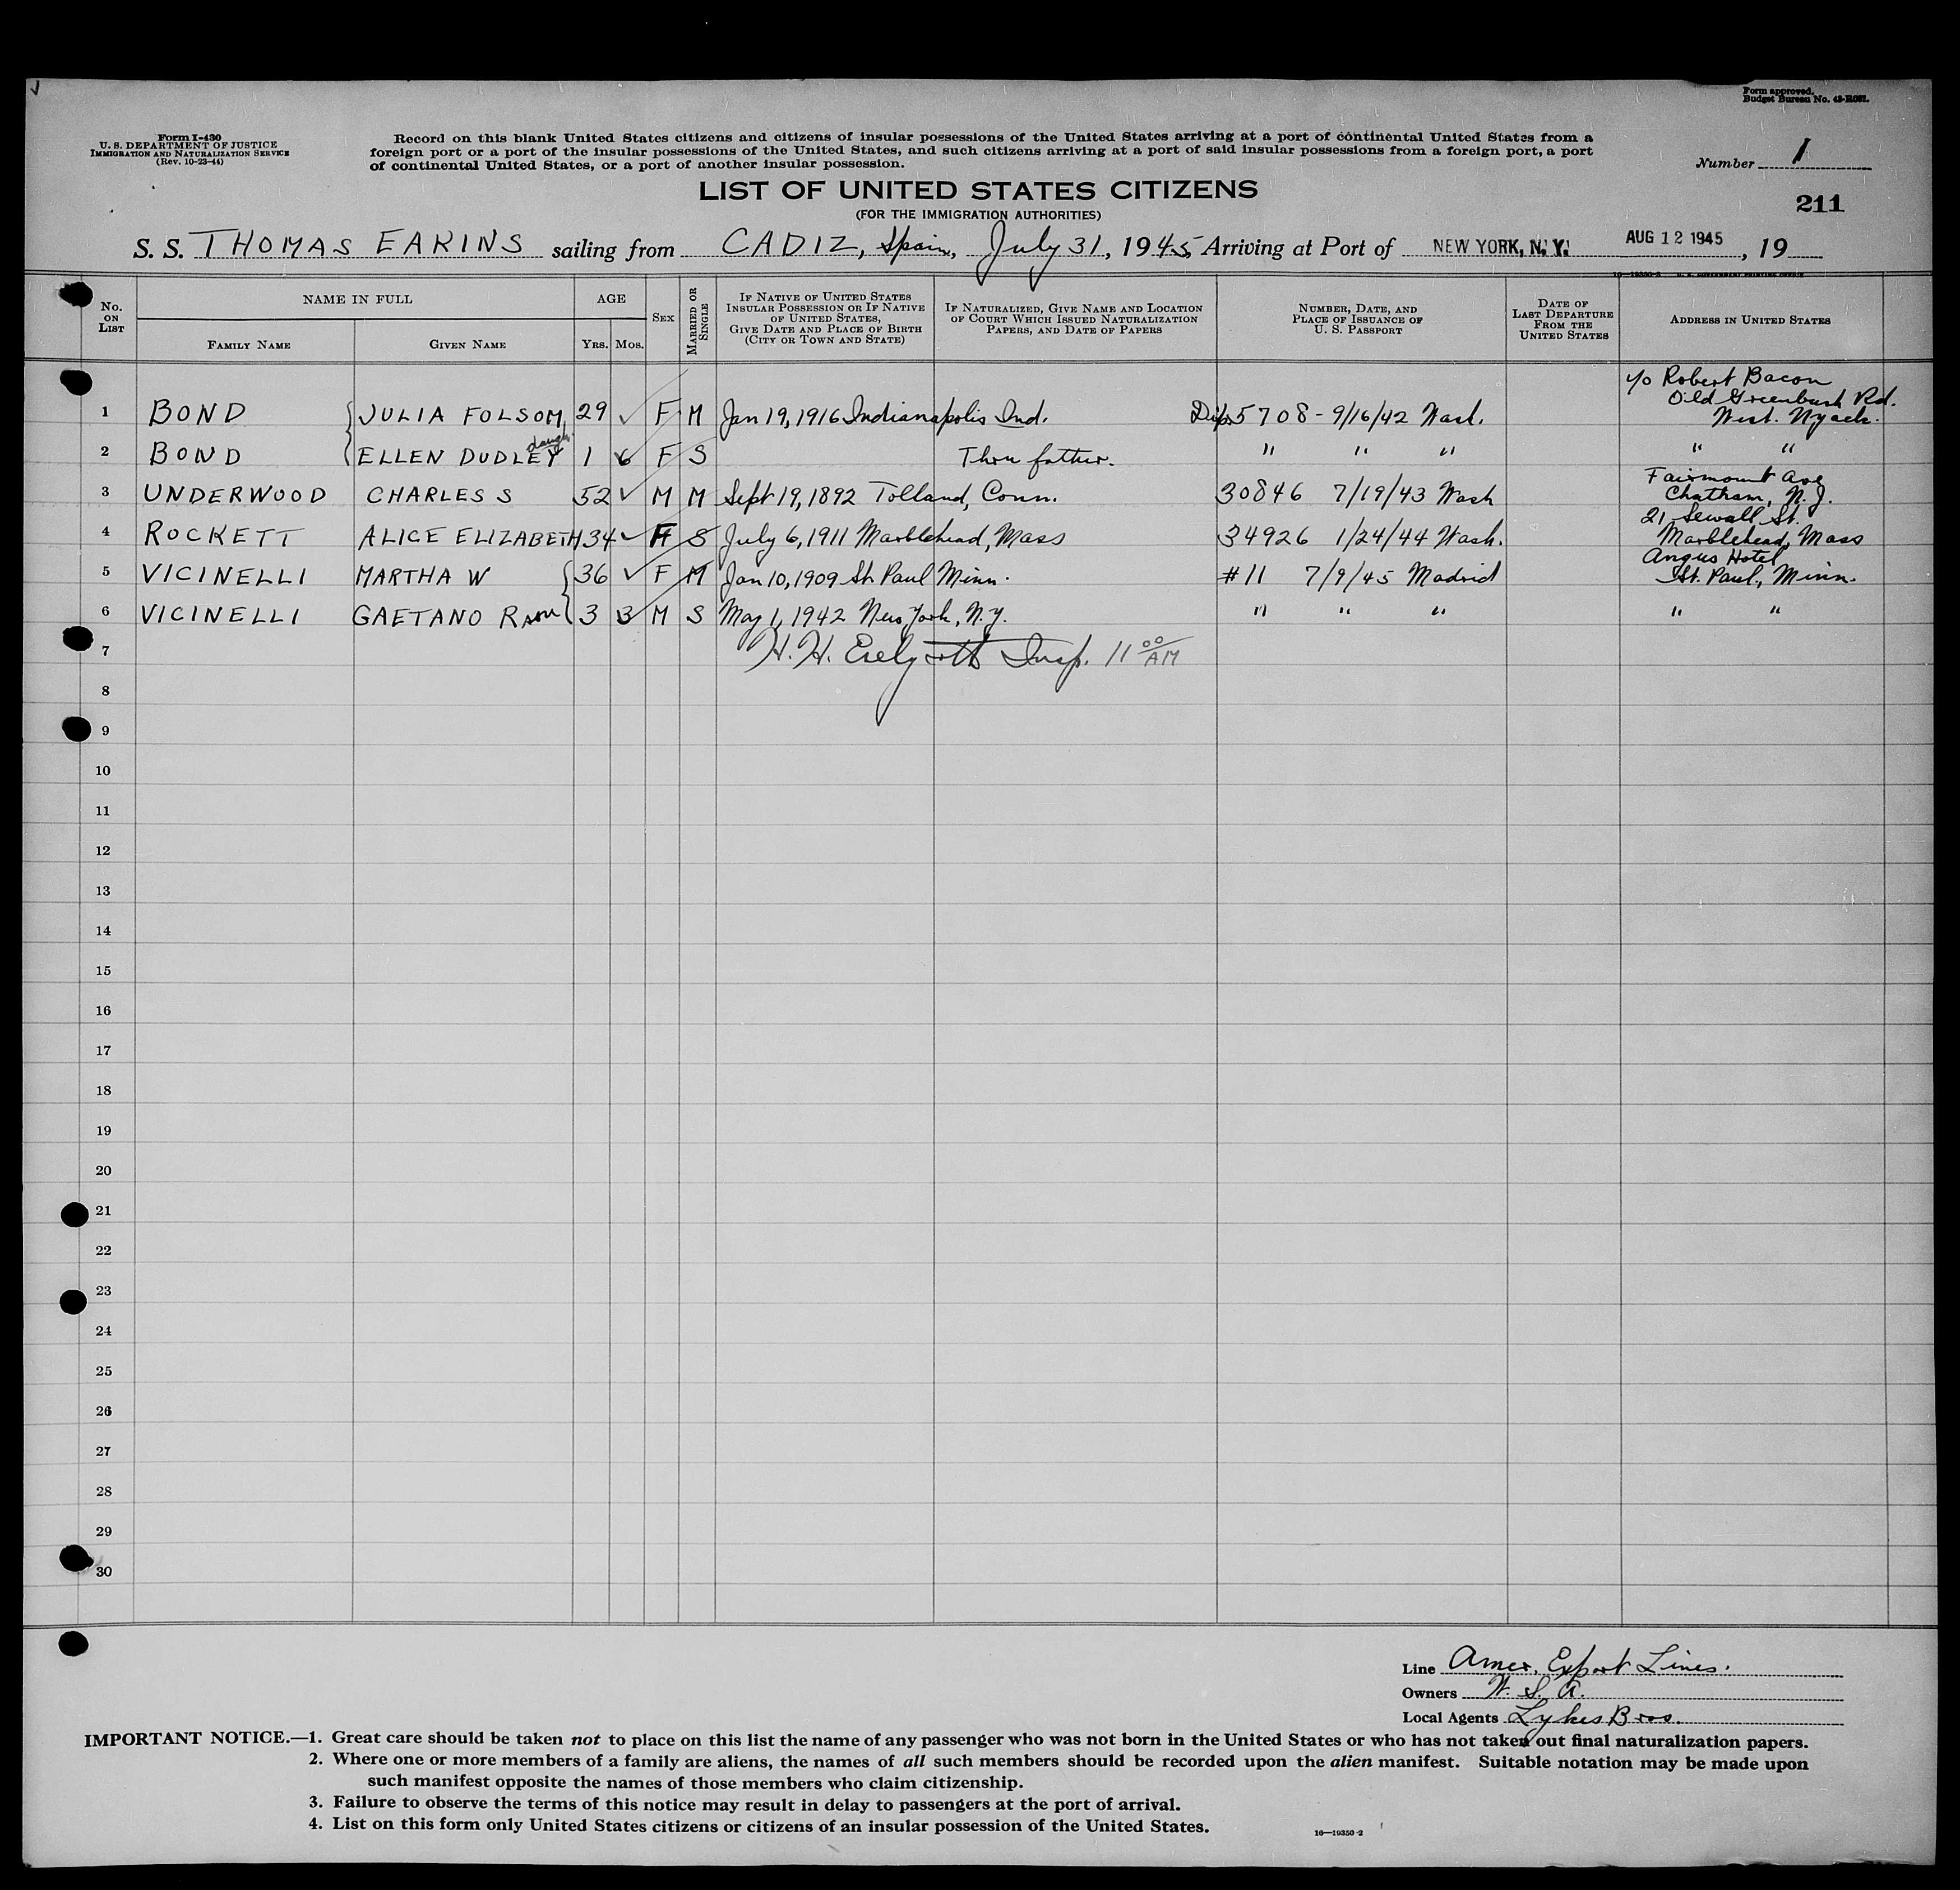 Form approved.
Budget Bureau No. 43-R081.
Form I-430
U. S. DEPARTMENT OF JUSTICE
IMMIGRATION AND NATURALIZATION SERVICE
(Rev. 10-23-44)
Record on this blank United States citizens and citizens of insular possessions of the United States arriving at a port of continental United States from a
foreign port or a port of the insular possessions of the United States, and such citizens arriving at a port of said insular possessions from a foreign port, a port
of continental United States, or a port of another insular possession.
Number 1
LIST OF UNITED STATES CITIZENS
(FOR THE IMMIGRATION AUTHORITIES)
211
S. S. THOMAS EAKINS sailing from CADIZ, Spain, July 31, 1945, Arriving at Port of NEW YORK, N. Y. AUG 12 1945, 19
No. ON LIST
NAME IN FULL
FAMILY NAME
GIVEN NAME
AGE
YRS. MOS.
SEX
MARRIED OR SINGLE
IF NATIVE OF UNITED STATES INSULAR POSSESSION OR IF NATIVE OF UNITED STATES, GIVE DATE AND PLACE OF BIRTH (CITY OR TOWN AND STATE)
IF NATURALIZED, GIVE NAME AND LOCATION OF COURT WHICH ISSUED NATURALIZATION PAPERS, AND DATE OF PAPERS
NUMBER, DATE, AND PLACE OF ISSUANCE OF U. S. PASSPORT
DATE OF LAST DEPARTURE FROM THE UNITED STATES
ADDRESS IN UNITED STATES
1 BOND JULIA FOLSOM 29 F M Jan 19, 1916 Indianapolis Ind. Dip 5708 - 9/16/42 Wash. c/o Robert Bacon Old Greenbush Rd. West. Nyack.
2 BOND ELLEN DUDLEY daugh. 1 6 F S Thru father. " " " " "
3 UNDERWOOD CHARLES S 52 M M Sept 19, 1892 Tolland, Conn. 30846 7/19/43 Wash Fairmount Ave Chatham, N.J.
4 ROCKETT ALICE ELIZABETH 34 F S July 6, 1911 Marblehead, Mass 34926 1/24/44 Wash. 21 Sewall St. Marblehead, Mass
5 VICINELLI MARTHA W 36 F M Jan 10, 1909 St Paul Minn. #11 7/9/45 Madrid Angus Hotel St. Paul, Minn.
6 VICINELLI GAETANO 3 3 M S May 1, 1942 New York, N.Y. " " " " "
7 H. H. Insp. 11 00 AM
8
9
10
11
12
13
14
15
16
17
18
19
20
21
22
23
24
25
26
27
28
29
30
Line Amer. Export Lines.
Owners W. S. A.
Local Agents Lykes Bros.
IMPORTANT NOTICE.—1. Great care should be taken not to place on this list the name of any passenger who was not born in the United States or who has not taken out final naturalization papers.
2. Where one or more members of a family are aliens, the names of all such members should be recorded upon the alien manifest. Suitable notation may be made upon
such manifest opposite the names of those members who claim citizenship.
3. Failure to observe the terms of this notice may result in delay to passengers at the port of arrival.
4. List on this form only United States citizens or citizens of an insular possession of the United States.
16—19350-2